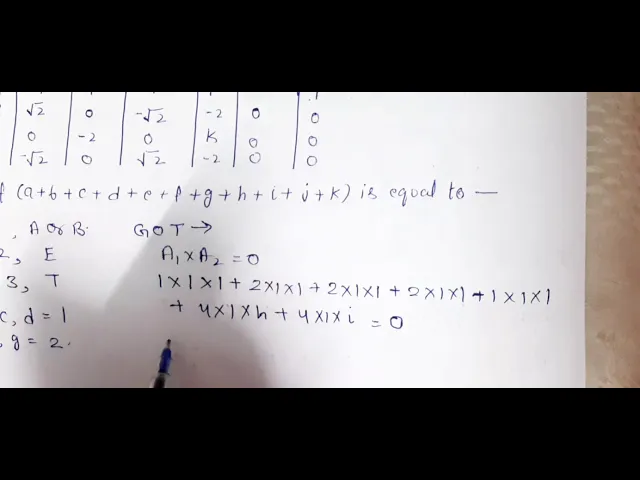 √2 | 0 | -√2 | -2 | 0 | 0
0 | -2 | 0 | K | 0 | 0
-√2 | 0 | √2 | -2 | 0 | 0
(a+b+c+d+e+f+g+h+i+j+k) is equal to —
, A or B. GOT →
2, E A₁ × A₂ = 0
3, T 1×1×1 + 2×1×1 + 2×1×1 + 2×1×1 + 1×1×1
c, d = 1 + 4×1×h + 4×1×i = 0
, g = 2.